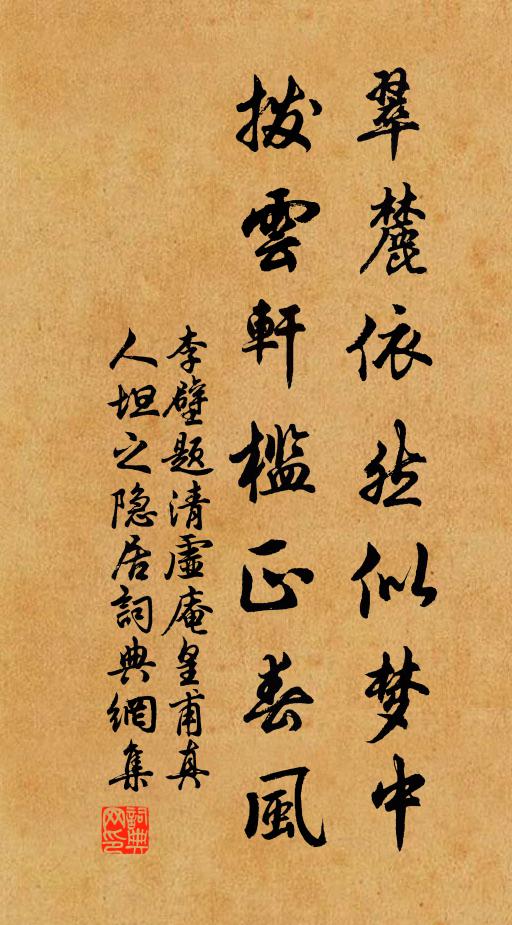 翠麓依然似梦中
拨雲軒槛正春風
李壁题清虛庵皇甫真
人坦之隐居詞典網集
詞典网印